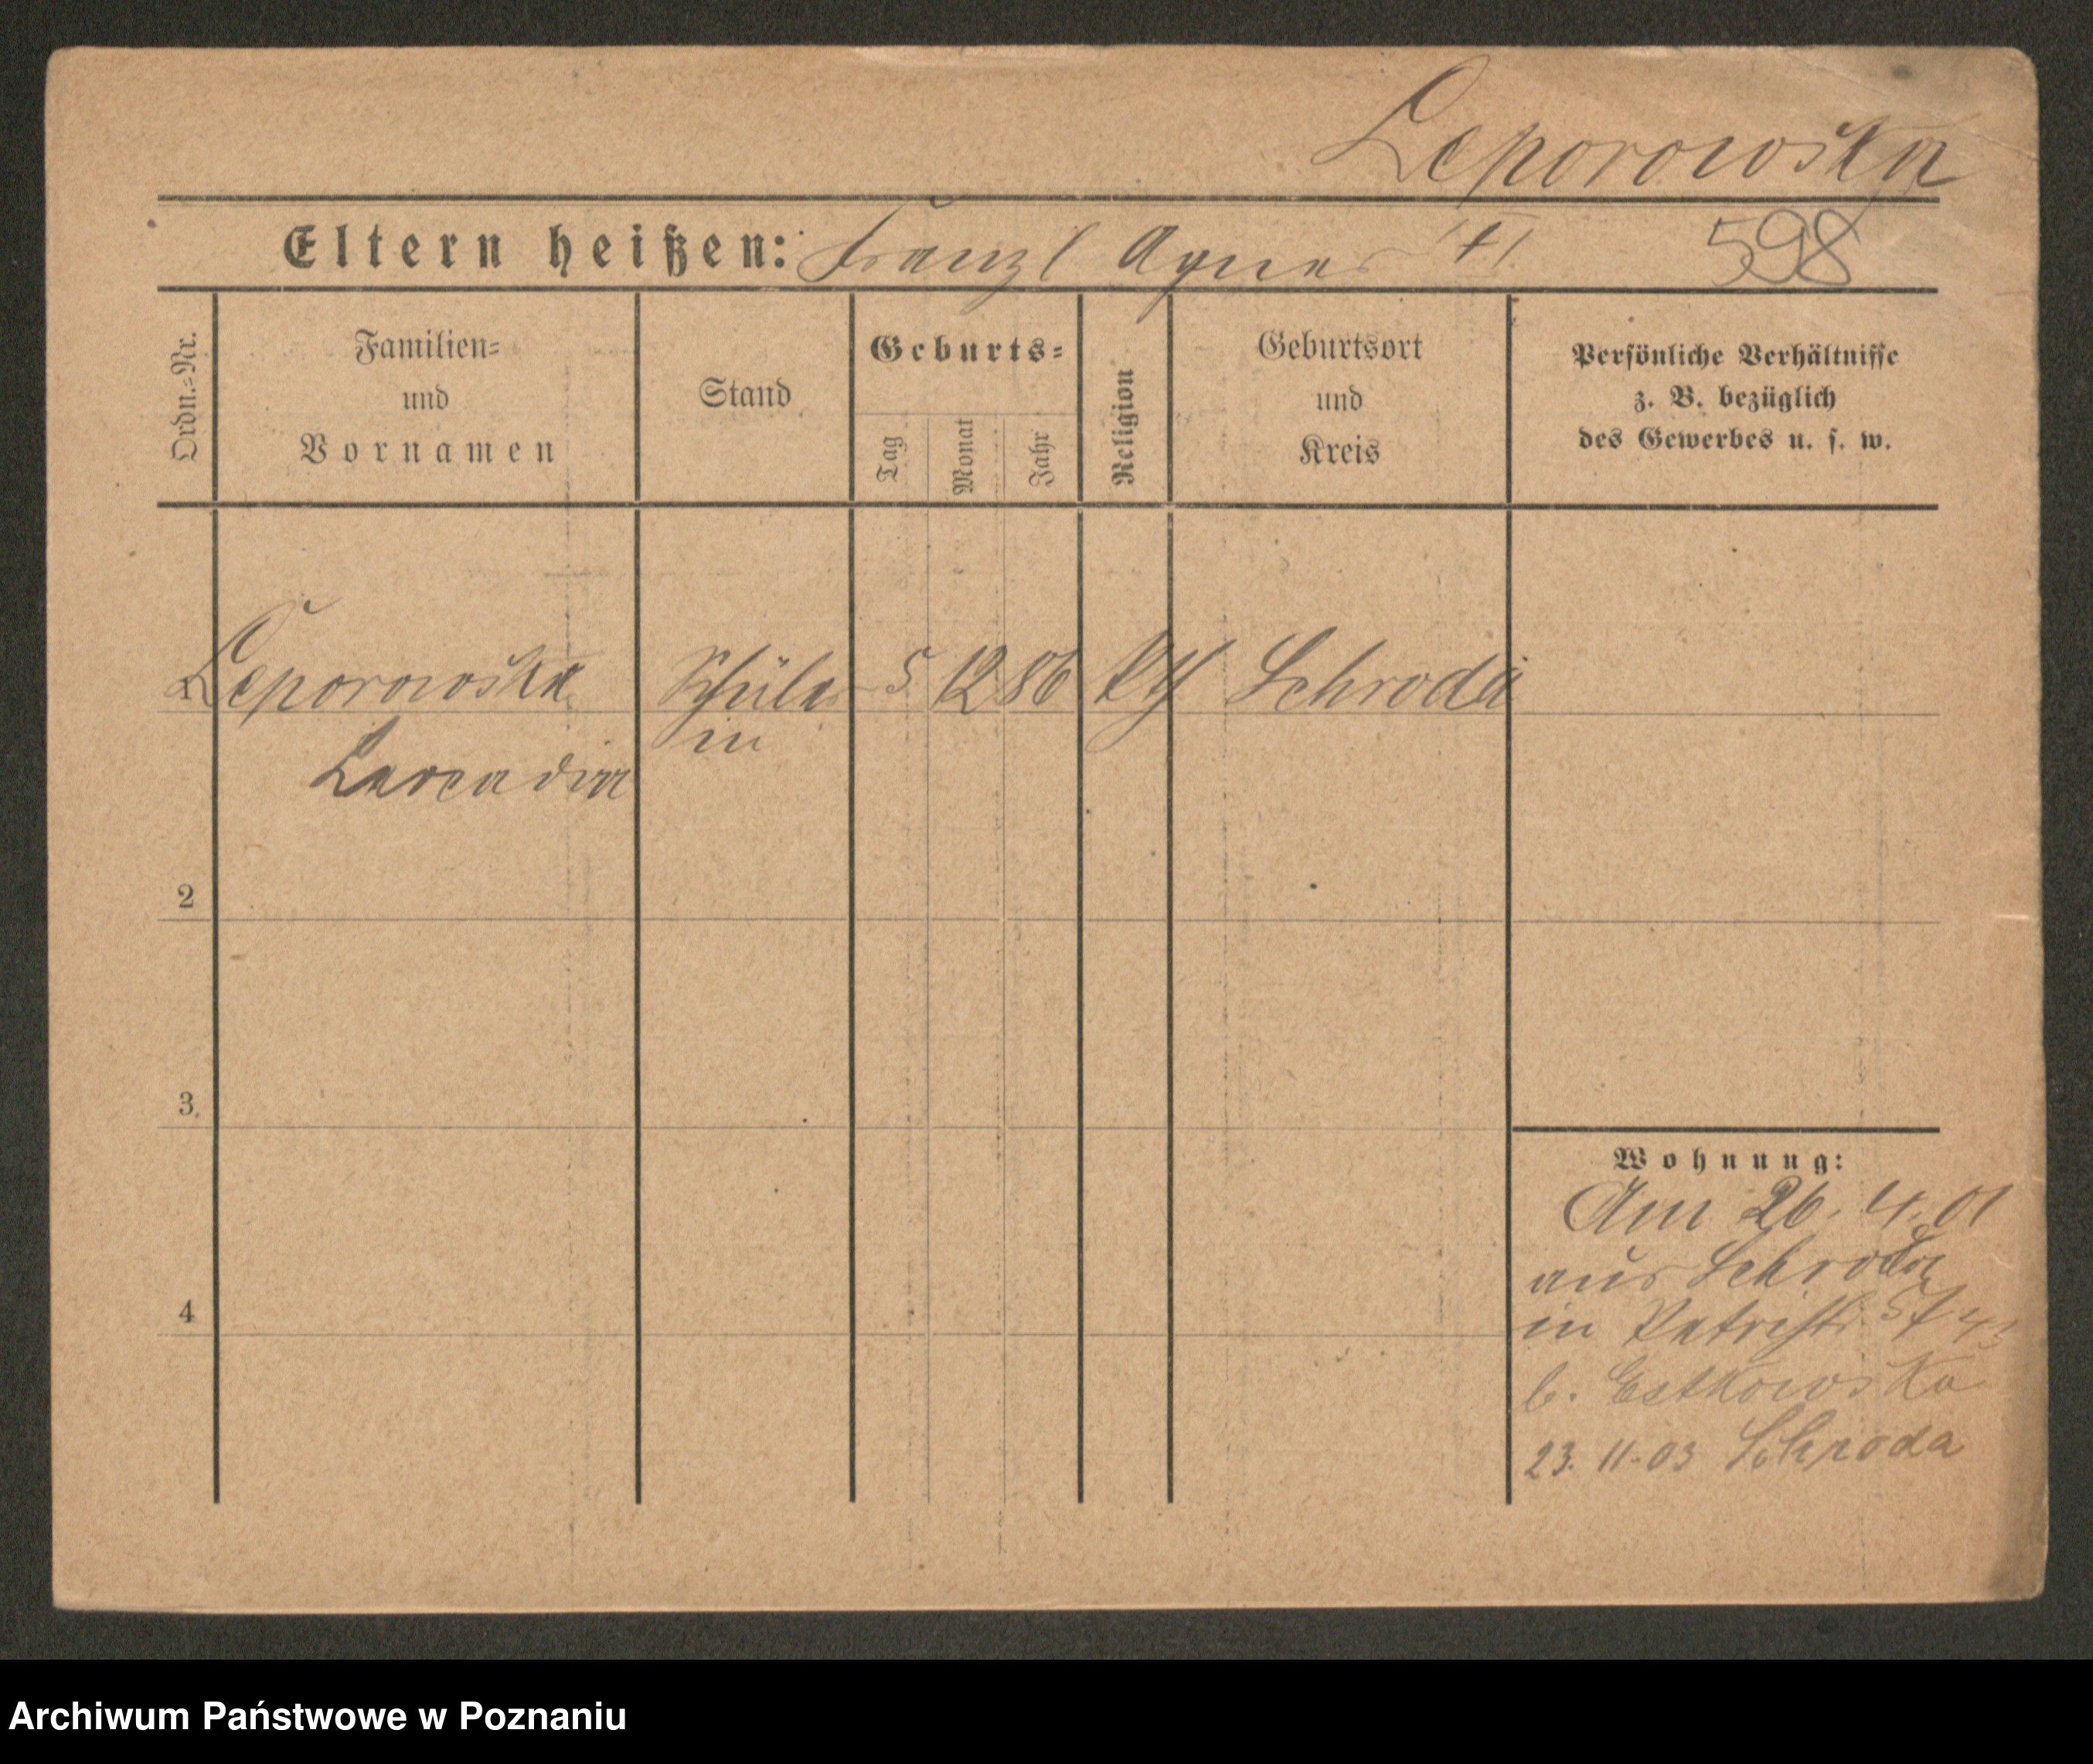 Leporowska
Eltern heißen: Franz Agnes 598
Ordn.-Nr.
Familien-
und
Vornamen
Stand
Geburts-
Tag
Monat
Jahr
Religion
Geburtsort
und
Kreis
Persönliche Verhältnisse
z. B. bezüglich
des Gewerbes u. s. w.
Leporowska Schüler 5 12 86 kth Schroda
in
2
3
4
Wohnung:
Am 26. 4. 01
aus Schroda
in
b. Estkowska
23. 11. 03 Schroda
Archiwum Państwowe w Poznaniu